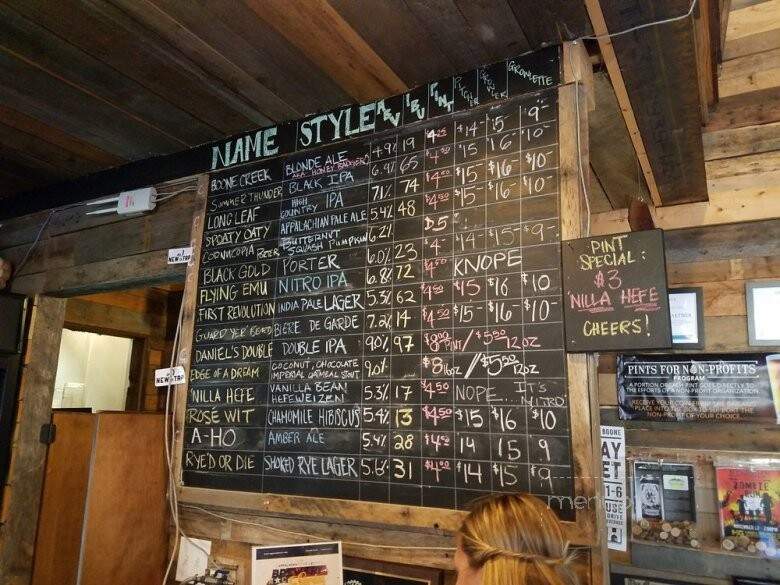 NAME STYLE ABV IBU PINT PITCHER GROWLER GROWLETTE
BOONE CREEK BLONDE ALE 4.9% 19 $14- $15- $9-
SUMMER THUNDER BLACK IPA 6.9% 65 $15 $16- $10-
LONG LEAF HIGH COUNTRY IPA 7.1% 74 $15- $16- $10-
SPOATY OATY APPALACHIAN PALE ALE 5.4% 48 $15- $16- $10-
CORNUCOPIA BEER BUTTERNUT SQUASH PUMPKIN 6.2%
BLACK GOLD PORTER 6.0% 23 $14- $15- $9-
FLYING EMU NITRO IPA 6.8% 72 KNOPE
FIRST REVOLUTION INDIA PALE LAGER 5.3% 62 $4.50 $15 $16 $10
GUARD YER BIÈRE DE GARDE 7.2% 14 $4.50 $15- $16- $10-
DANIEL'S DOUBLE DOUBLE IPA 9.0% 97 PINT / $5.50 12OZ
EDGE OF A DREAM COCONUT, CHOCOLATE IMPERIAL OATMEAL STOUT 9.0% / $5.50 12OZ
'NILLA HEFE VANILLA BEAN HEFEWEIZEN 5.3% 17 $4.50 NOPE... IT'S NITRO
ROSÉ WIT CHAMOMILE HIBISCUS 5.4% 13 $4.50 $15 $16 $10
A-HO AMBER ALE 5.4% 28 14 15 9
RYE'D OR DIE SMOKED RYE LAGER 5.6% 31 $14 $15 $9
PINT
SPECIAL:
$3
'NILLA HEFE
CHEERS!
NEW TRP
NEW TRP
PINTS FOR NON-PROFITS
PROGRAM
A PORTION OF EACH PINT GOES DIRECTLY TO
THE EFFORTS OF A NON-PROFIT ORGANIZATION
OF YOUR CHOICE
BOONE
ZOMBIE
men